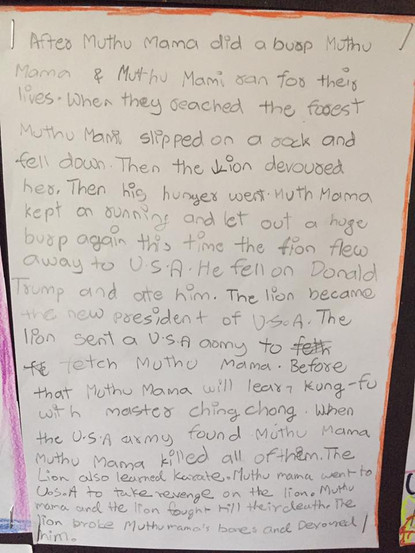 After Muthu Mama did a burp Muthu
Mama & Muthu Mami ran for their
lives. When they reached the forest
Muthu Mami slipped on a rock and
fell down. Then the Lion devoured
her. Then his hunger went. Muth Mama
kept on running and let out a huge
burp again this time the lion flew
away to U.S.A. He fell on Donald
Trump and ate him. The lion became
the new president of U.S.A. The
lion sent a U.S.A army to
fetch Muthu Mama. Before
that Muthu Mama will learn kung-fu
with master ching chong. When
the U.S.A army found Muthu Mama
Muthu Mama killed all of them. The
Lion also learned karate. Muthu mama went to
U.S.A to take revenge on the lion. Muthu
mama and the lion fought till their death. The
lion broke Muthu mama's bones and Devoured
him.